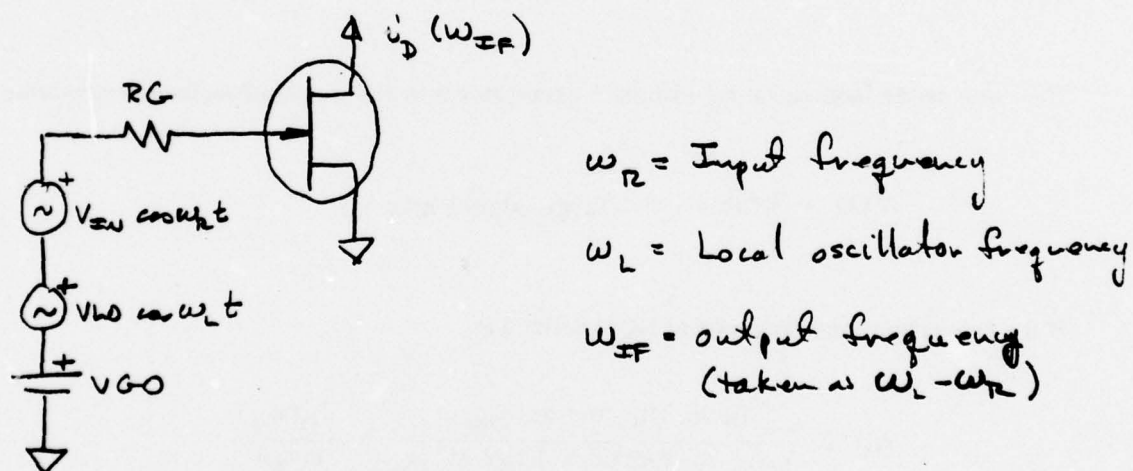 i_D (ω_IF)
RG
V_IN cos ω_R t
VLO cos ω_L t
VGO
+
+
+
ω_R = Input frequency
ω_L = Local oscillator frequency
ω_IF = output frequency
(taken as ω_L - ω_R)